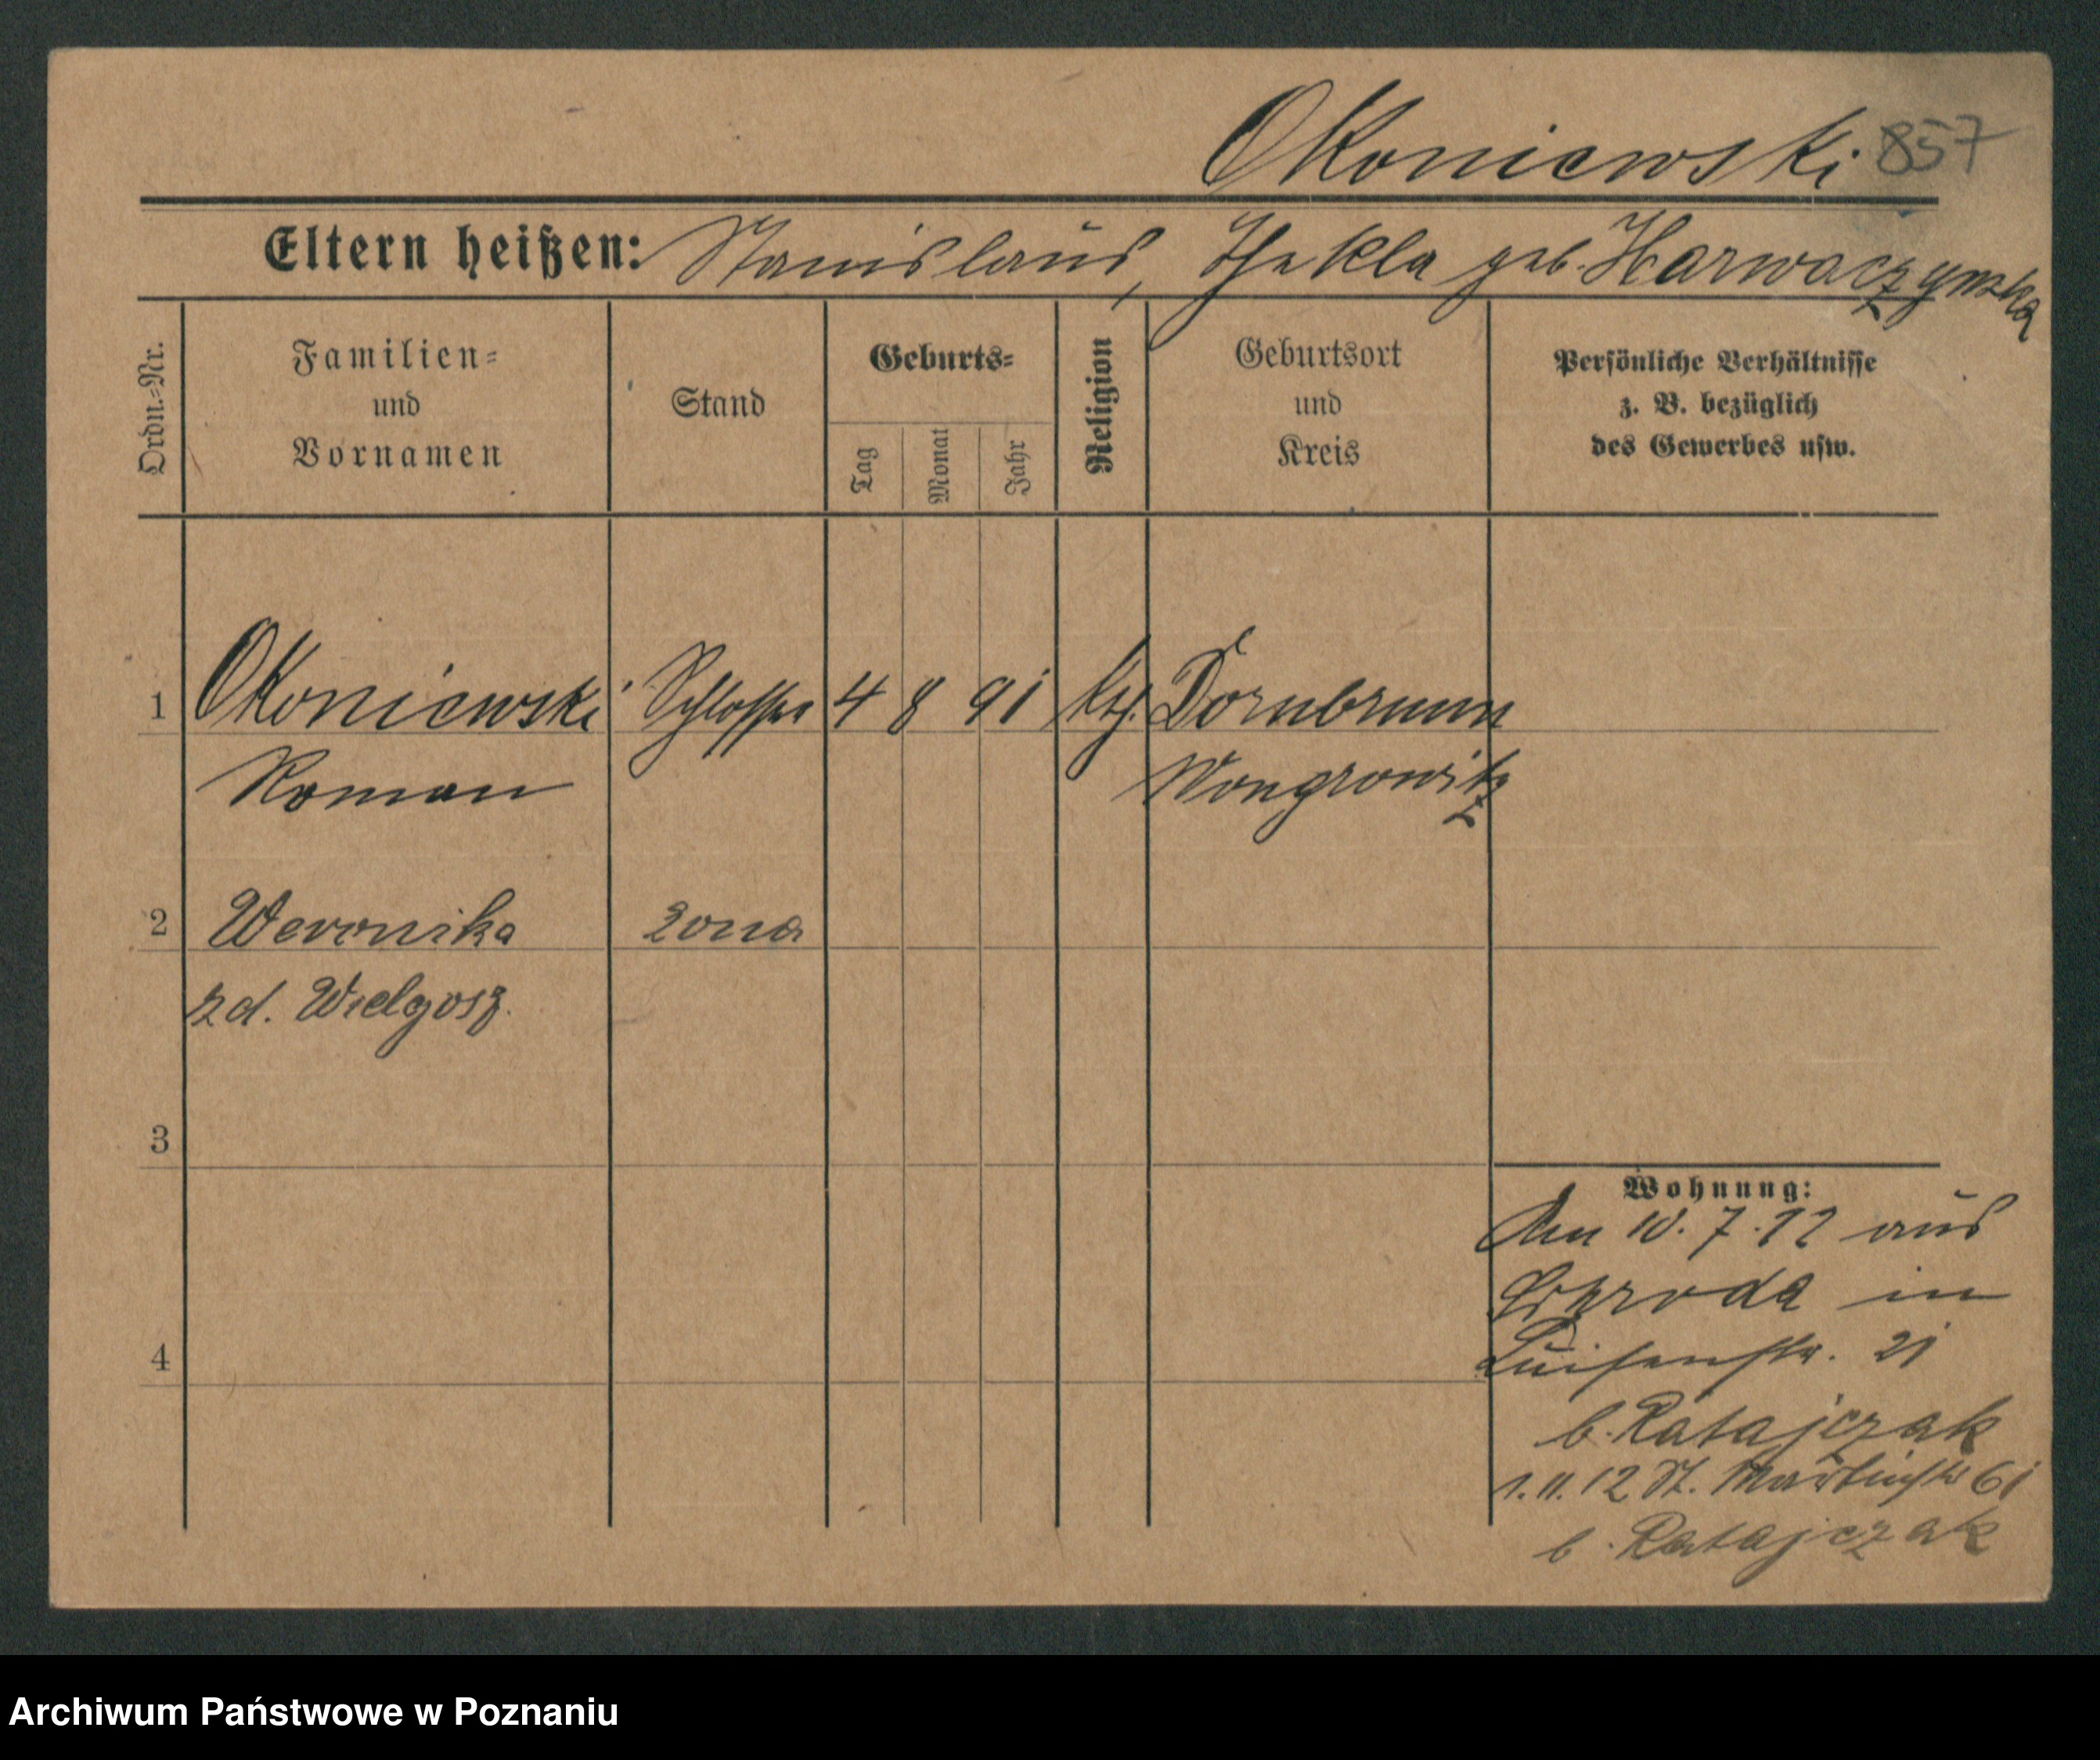 Okoniewski 857
Eltern heißen: Stanislaus, Thekla geb. Harwaczynska
Ordn.-Nr.
Familien-
und
Vornamen
Stand
Geburts-
Tag
Monat
Jahr
Religion
Geburtsort
und
Kreis
Persönliche Verhältnisse
z. B. bezüglich
des Gewerbes usw.
1 Okoniewski Schlosser 4 8 91 kth. Dornbrunn
Roman Wongrowitz
2 Weronika żona
zd. Wielgosz.
3
Wohnung:
Am 10. 7. 12 aus
Schroda in
4 Luisenstr. 21
b. Ratajczak
1. 11. 12 St. Martinstr 61
b. Ratajczak
Archiwum Państwowe w Poznaniu